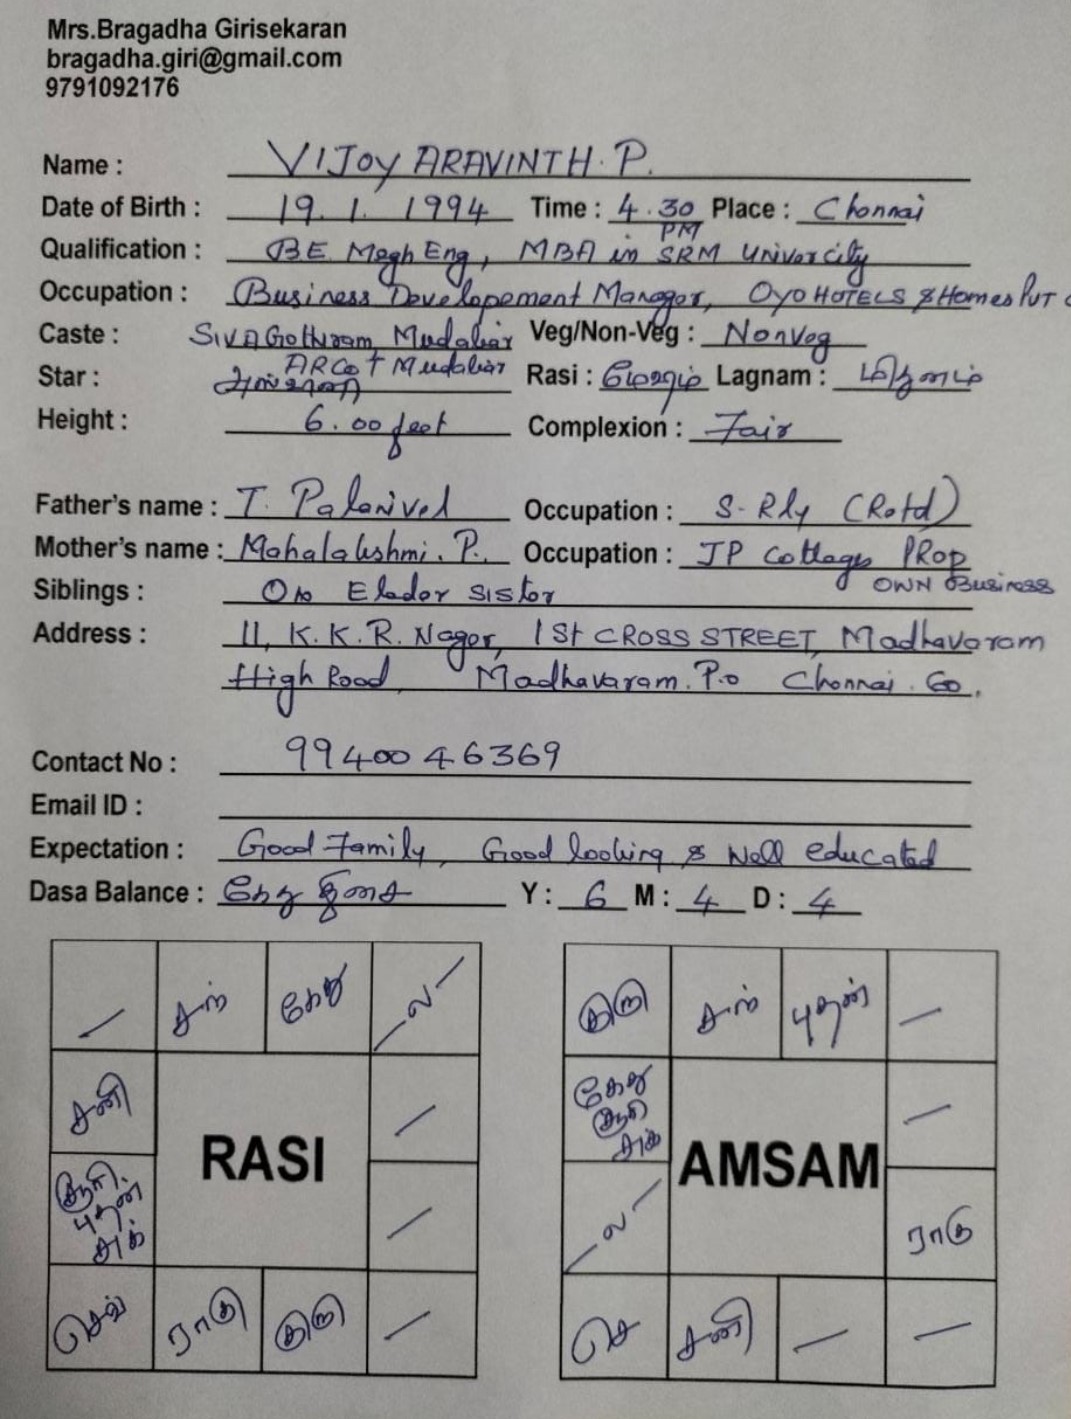 Mrs.Bragadha Girisekaran
bragadha.giri@gmail.com
9791092176
Name : VIJOY ARAVINTH. P.
Date of Birth : 19. 1. 1994 Time : 4.30 PM Place : Chennai
Qualification : BE Megh Eng, MBA in SRM Univercity
Occupation : Business Developement Manager, OYO HOTELS & Homes PVT
Caste : SIVA Gothram Mudaliar Veg/Non-Veg : Nonveg
ARCOT Mudaliar
Star : Rasi : மேஷம் Lagnam : மிதுனம்
Height : 6.00 feet Complexion : Fair
Father's name : T. Palanivel Occupation : S. Rly (Retd)
Mother's name : Mahalakshmi. P. Occupation : JP Cottage PROP
OWN Business
Siblings : One Elader Sister
Address : 11, K.K.R. Nagar, 1St CROSS STREET, Madhavaram
High Road, Madhavaram. P.o Chennai. 60.
Contact No : 99400 46369
Email ID :
Expectation : Good Family, Good looking & Well educated
Dasa Balance : கேது திசை Y : 6 M : 4 D : 4
சந் கேது ல
சனி
RASI
புதன்
செவ் ராகு குரு
குரு சந் புதன்
கேது
AMSAM
ல ராகு
செ சனி